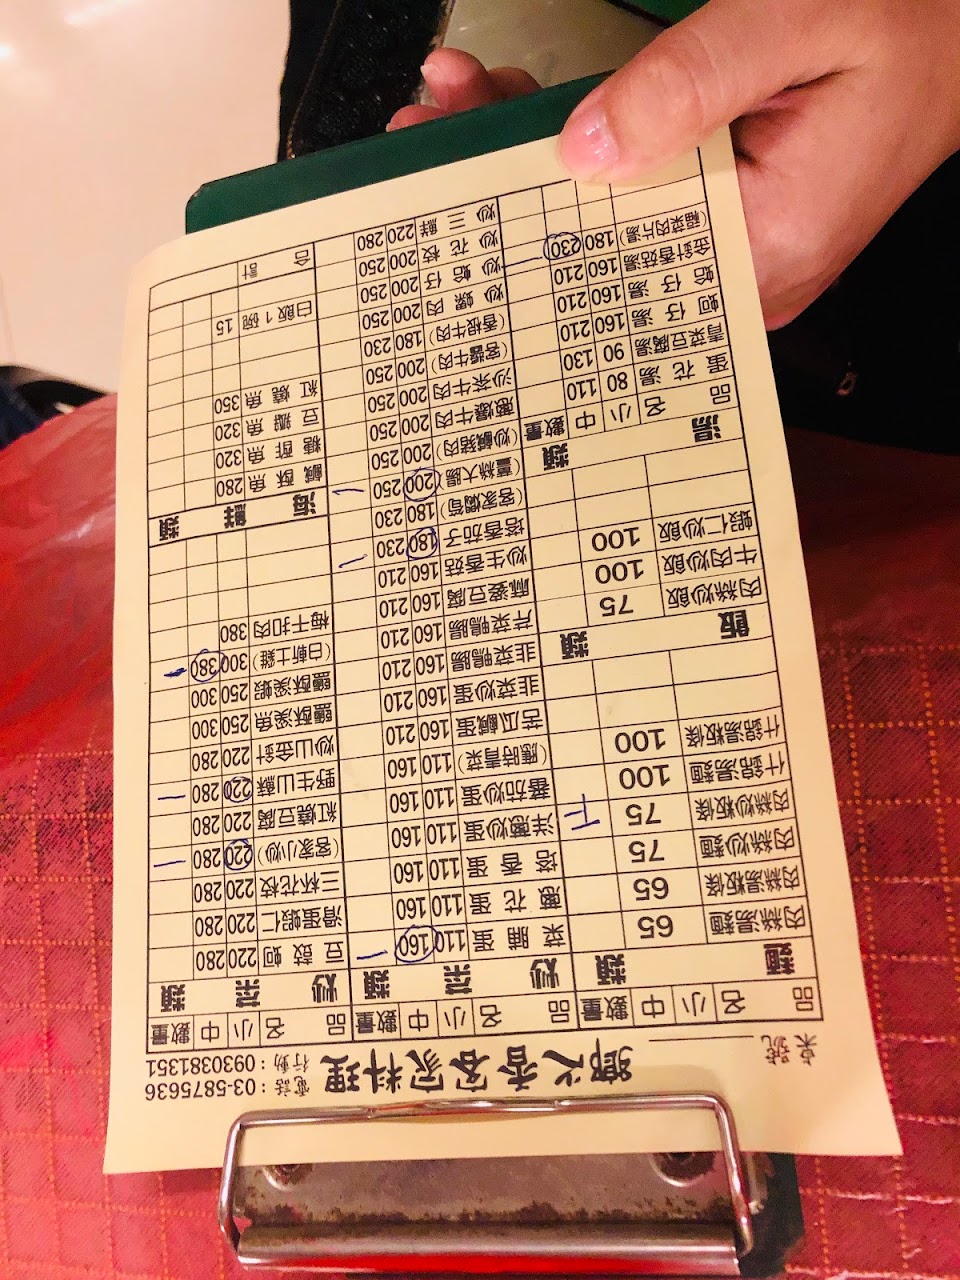 桌號
鄉之香客家料理
電話：03-5875636
行動：0930381351
品名 數量
麵類
肉絲湯麵 65
肉絲湯粄條 65
肉絲炒麵 75
肉絲炒粄條 75
什錦湯麵 100
什錦湯粄條 100
飯類
肉絲炒飯 75
牛肉炒飯 100
蝦仁炒飯 100
湯類
品名 小 中 數量
蛋花湯 80 110
青菜豆腐湯 90 130
蚵仔湯 160 210
蛤仔湯 160 210
金針香菇湯 160 210
(福菜肉片湯) 180 230 一
品名 小 中 數量
炒菜類
菜脯蛋 110 160 一
蔥花蛋 110 160
塔香蛋 110 160
洋蔥炒蛋 110 160
蕃茄炒蛋 110 160
(應時青菜) 110 160
苦瓜鹹蛋 160 210
韭菜炒蛋 160 210
韭菜鴨腸 160 210
芹菜鴨腸 160 210
麻婆豆腐 160 210
炒生香菇 160 210
塔香茄子 180 230 一
客家燜筍 180 230
(薑絲大腸) 200 250 一
(炒鹹豬肉) 200 250
蔥爆牛肉 200 250
沙茶牛肉 200 250
(客醬牛肉) 200 250
(香根牛肉) 180 230
炒螺肉 200 250
炒蛤仔 200 250
炒花枝 200 250
炒三鮮 220 280
品名 小 中 數量
炒菜類
豆豉蚵 220 280
滑蛋蝦仁 220 280
三杯花枝 220 280
(客家小炒) 220 280 一
紅燒豆腐 220 280
野生山蘇 220 280 一
炒山金針 220 280
鹽酥溪魚 250 300
鹽酥溪蝦 250 300
(白斬土雞) 300 380 一
梅干扣肉 380
海鮮類
鹹酥魚 280
糖醋魚 320
豆瓣魚 320
紅燒魚 350
白飯1碗 15
合計